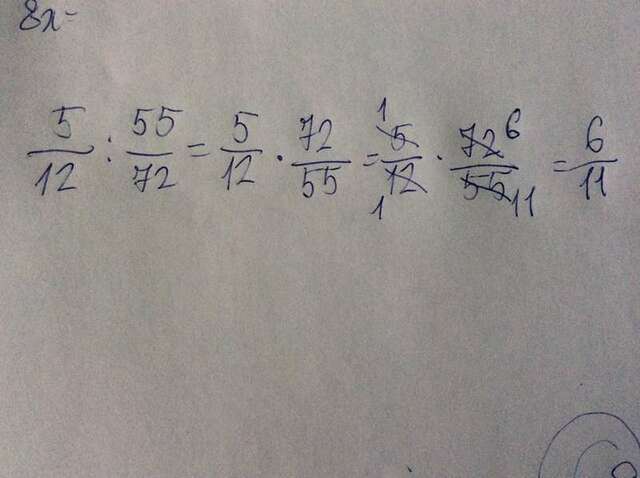 8x-
5/12 : 55/72 = 5/12 · 72/55 = 1 5/12 1 · 72 6/55 11 = 6/11